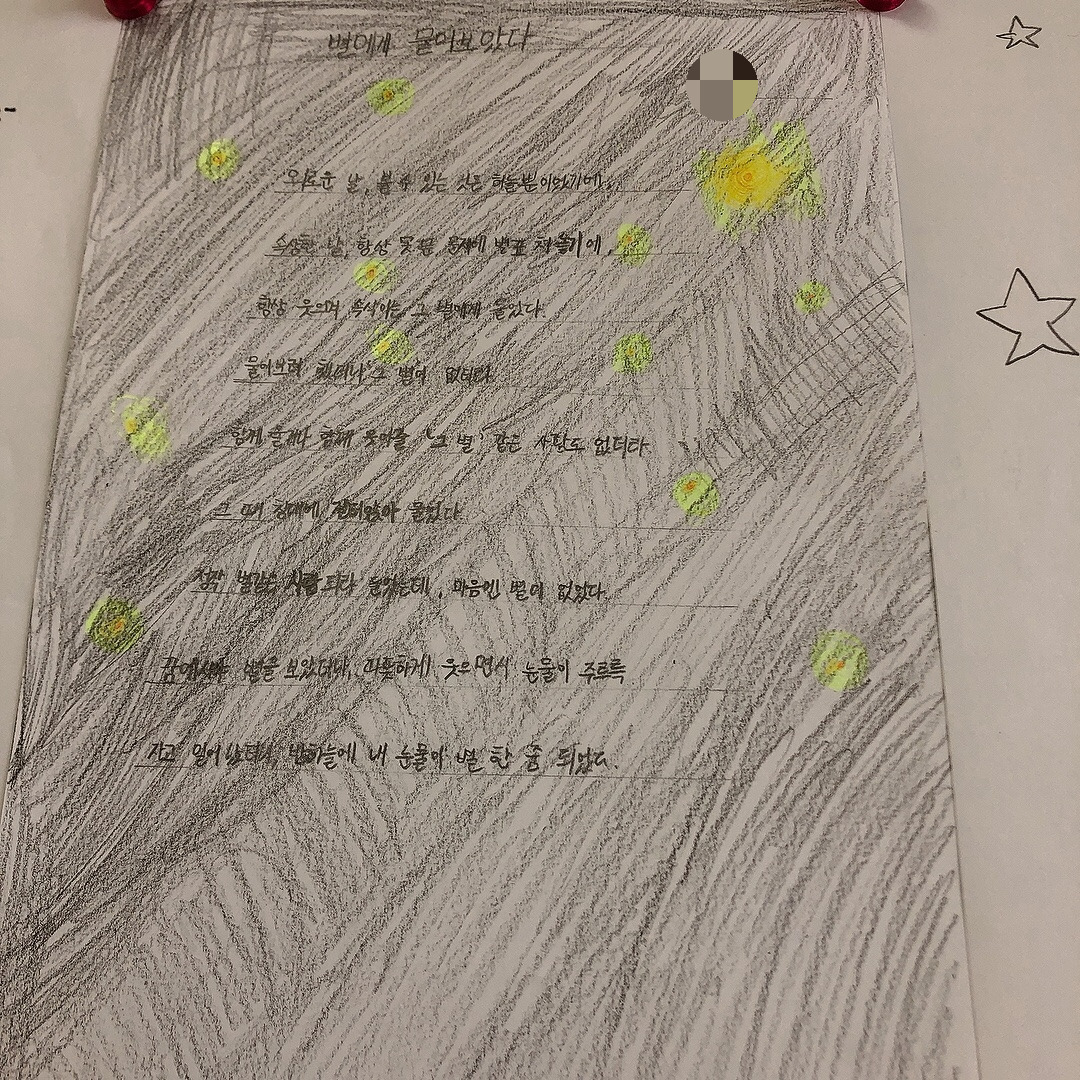 별에게 물어보았다
외로운 날, 볼 수 있는 것은 하늘뿐이었기에,
속상한 날, 항상 못 푼 문제에 별표 쳐놓기에,
항상 웃으며 속삭이는 그 별에게 물었다.
물어보려 했더니 그 별이 없더라
함께 울거나 함께 웃어줄 '그 별' 같은 사람도 없더라.
그 때 침대에 걸터앉아 울었다
정작 별같은 사람 되라 들었는데, 마음엔 별이 없었다.
꿈에서나 별을 보았더니, 따뜻하게 웃으면서 눈물이 주르륵
자고 일어났더니 밤하늘에 내 눈물이 별 한 줌 되었다.